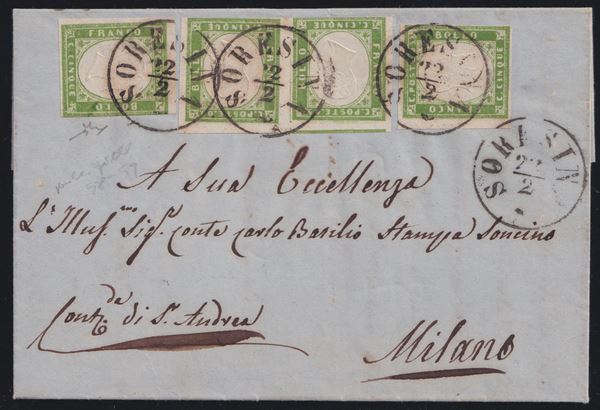 FRANCO C. CINQUE BOLLO
C. CINQUE FRANCO BOLLO
C. POSTE FRANCO C. CINQUE
BOLLO C. POSTE C. CINQUE
SORESINA 22/2
SORESINA 22/2
SORESINA 22/2
SORESINA 22/2
A Sua Eccellenza
L'Illus.mo Sig.r conte carlo Basilio Stampa Soncino
Cont.da di S.t Andrea
Milano